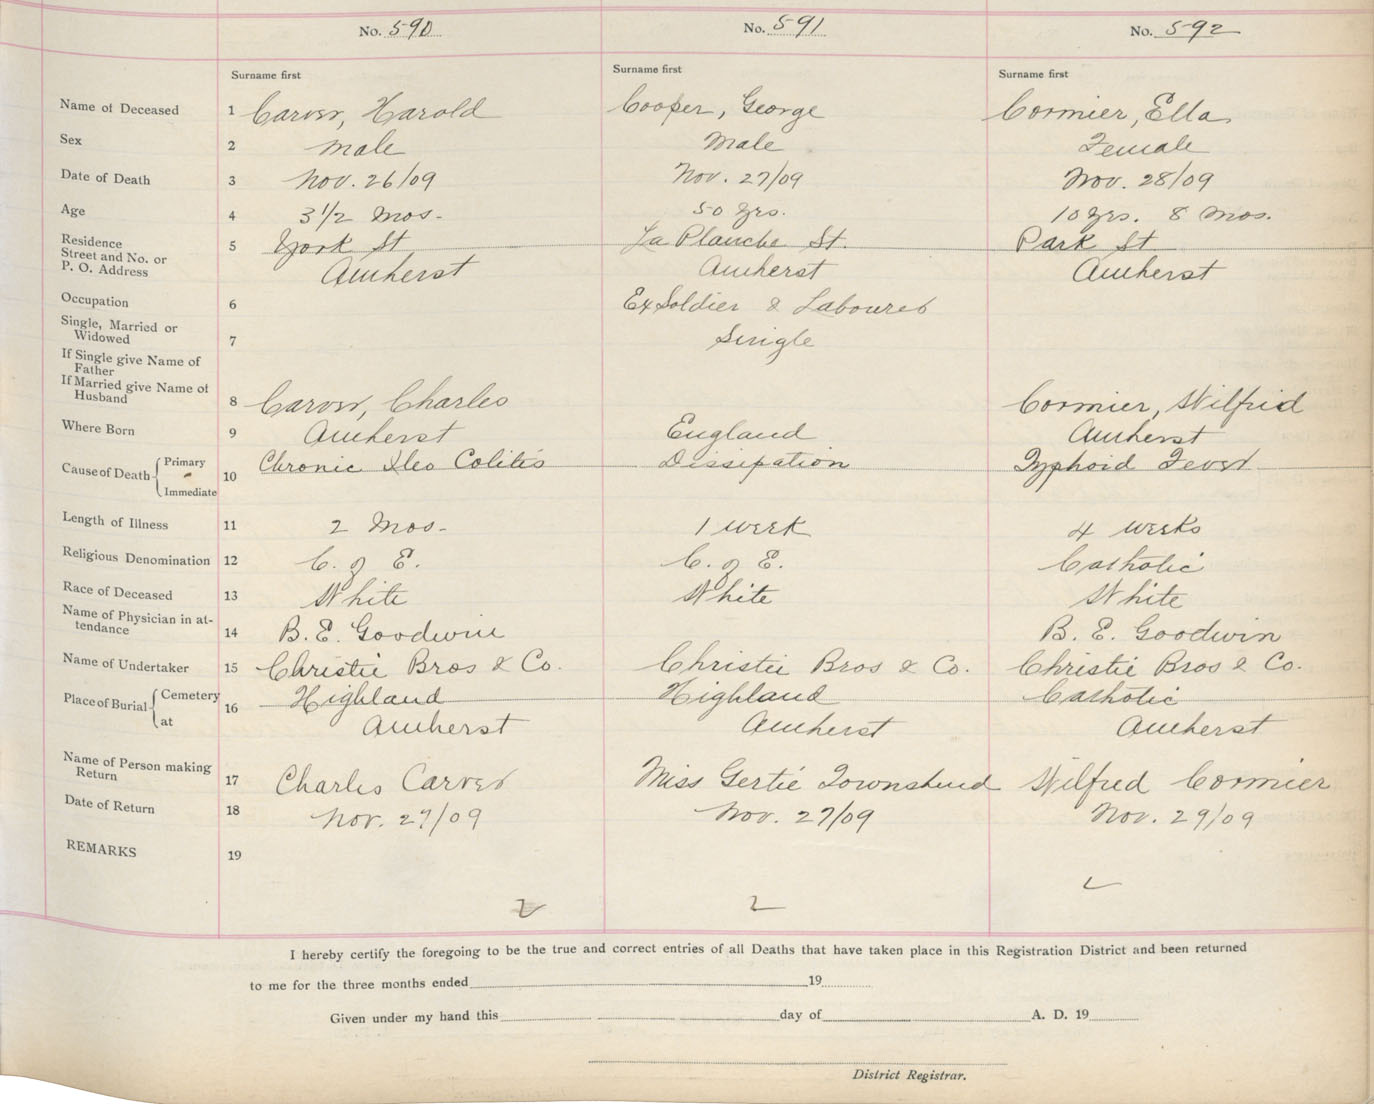 No. 590 No. 591 No. 592
Surname first Surname first Surname first
Name of Deceased 1 Carver, Harold Cooper, George Cormier, Ella
Sex 2 Male Male Female
Date of Death 3 Nov. 26/09 Nov. 27/09 Nov. 28/09
Age 4 3 1/2 Mos. 50 yrs. 10 yrs. 8 Mos.
Residence 5 York St La Planche St. Park St
Street and No. or
P. O. Address Amherst Amherst Amherst
Occupation 6 Ex Soldier & Labourer
Single, Married or
Widowed 7 Single
If Single give Name of
Father
If Married give Name of
Husband 8 Carver, Charles Cormier, Wilfrid
Where Born 9 Amherst England Amherst
Cause of Death Primary 10 Chronic Ileo Colitis Dissipation Typhoid Fever
Immediate
Length of Illness 11 2 Mos. 1 week 4 weeks
Religious Denomination 12 C. of E. C. of E. Catholic
Race of Deceased 13 White White White
Name of Physician in at-
tendance 14 B. E. Goodwin B. E. Goodwin
Name of Undertaker 15 Christie Bros & Co. Christie Bros & Co. Christie Bros & Co.
Place of Burial Cemetery 16 Highland Highland Catholic
at Amherst Amherst Amherst
Name of Person making
Return 17 Charles Carver Miss Gertie Townshend Wilfred Cormier
Date of Return 18 Nov. 27/09 Nov. 27/09 Nov. 29/09
REMARKS 19
I hereby certify the foregoing to be the true and correct entries of all Deaths that have taken place in this Registration District and been returned
to me for the three months ended 19
Given under my hand this day of A. D. 19
District Registrar.